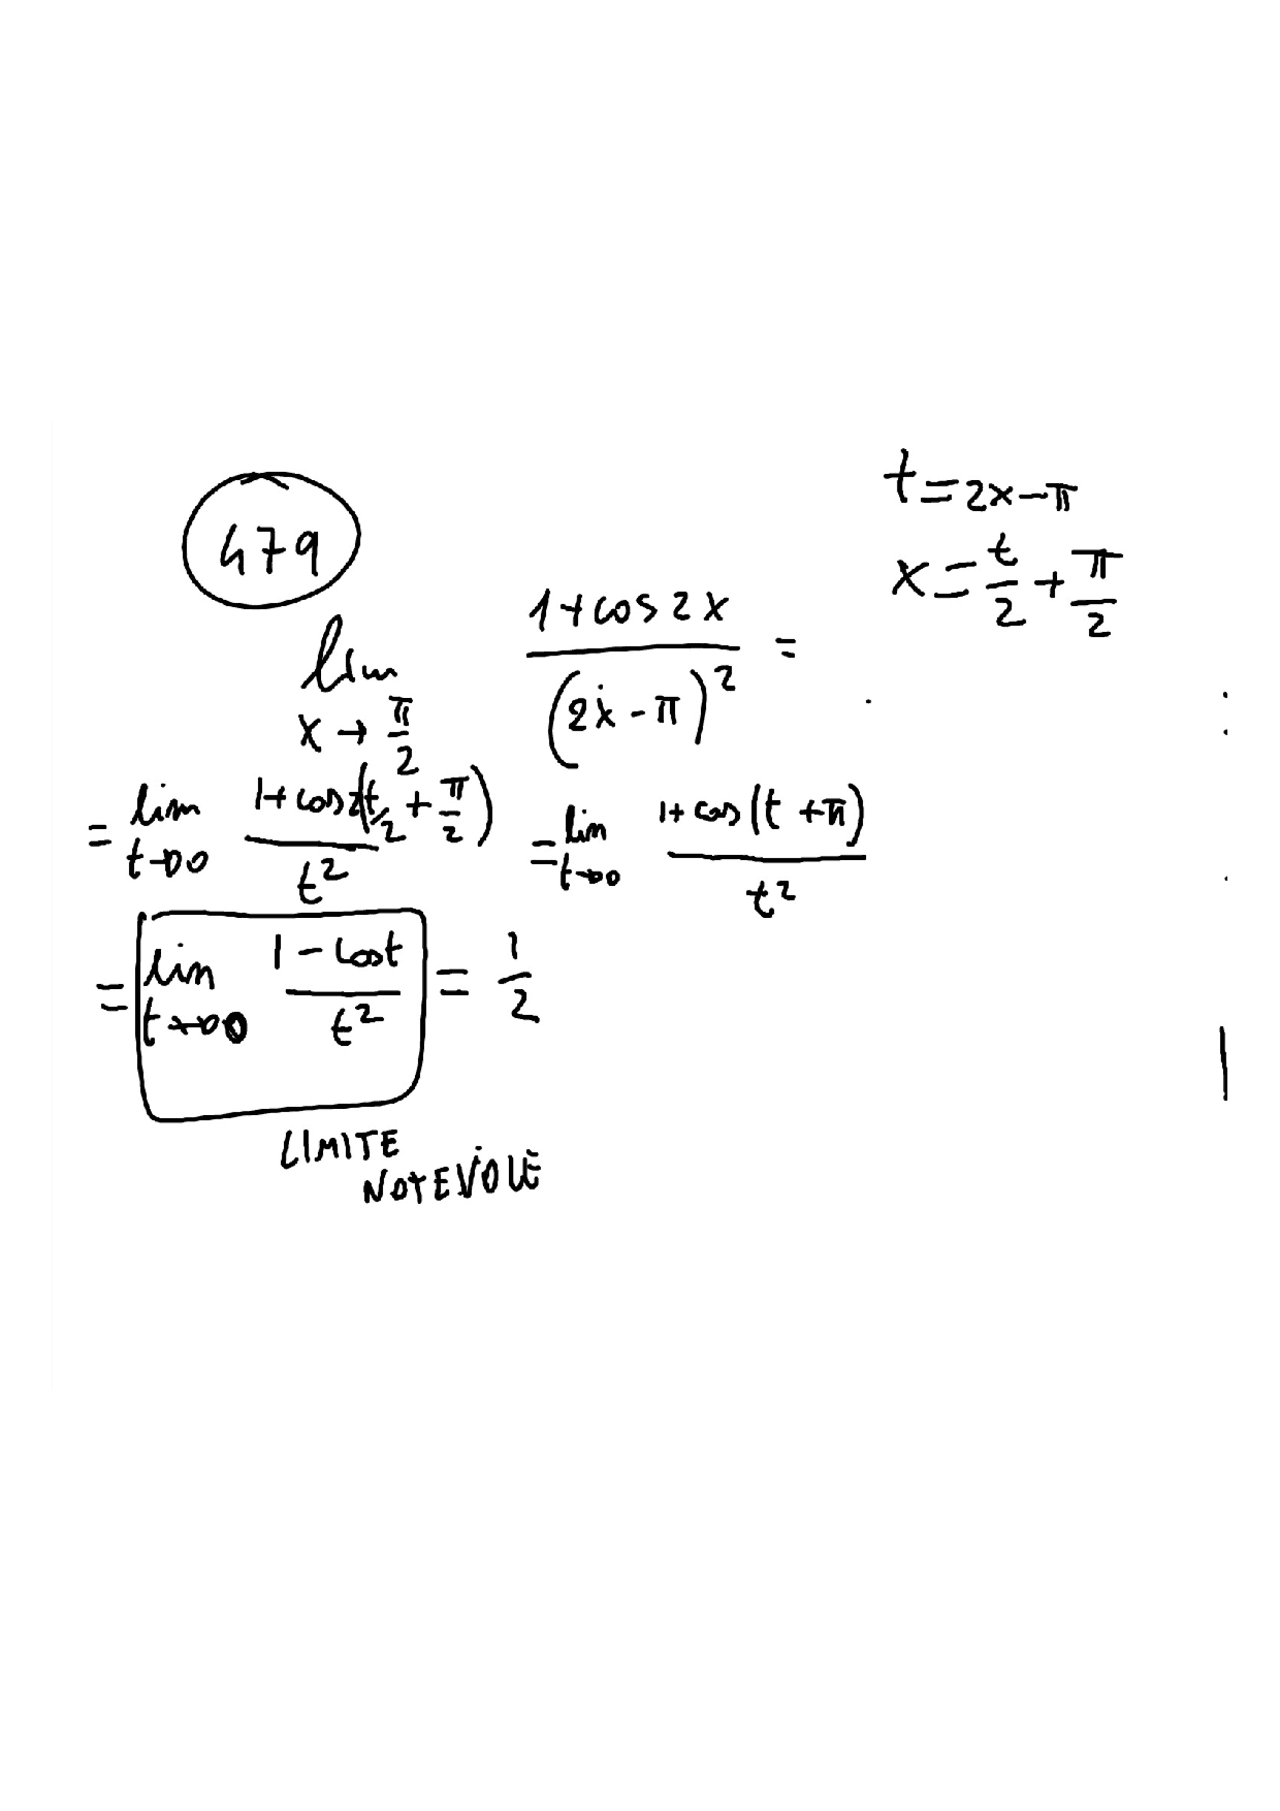 479
t = 2x - π
x = t/2 + π/2
lim x → π/2 (1 + cos 2x)/(2x - π)² =
= lim t→0 (1 + cos 2(t/2 + π/2))/t² = lim t→0 (1 + cos (t + π))/t²
= lim t→0 (1 - cos t)/t² = 1/2
LIMITE
NOTEVOLE